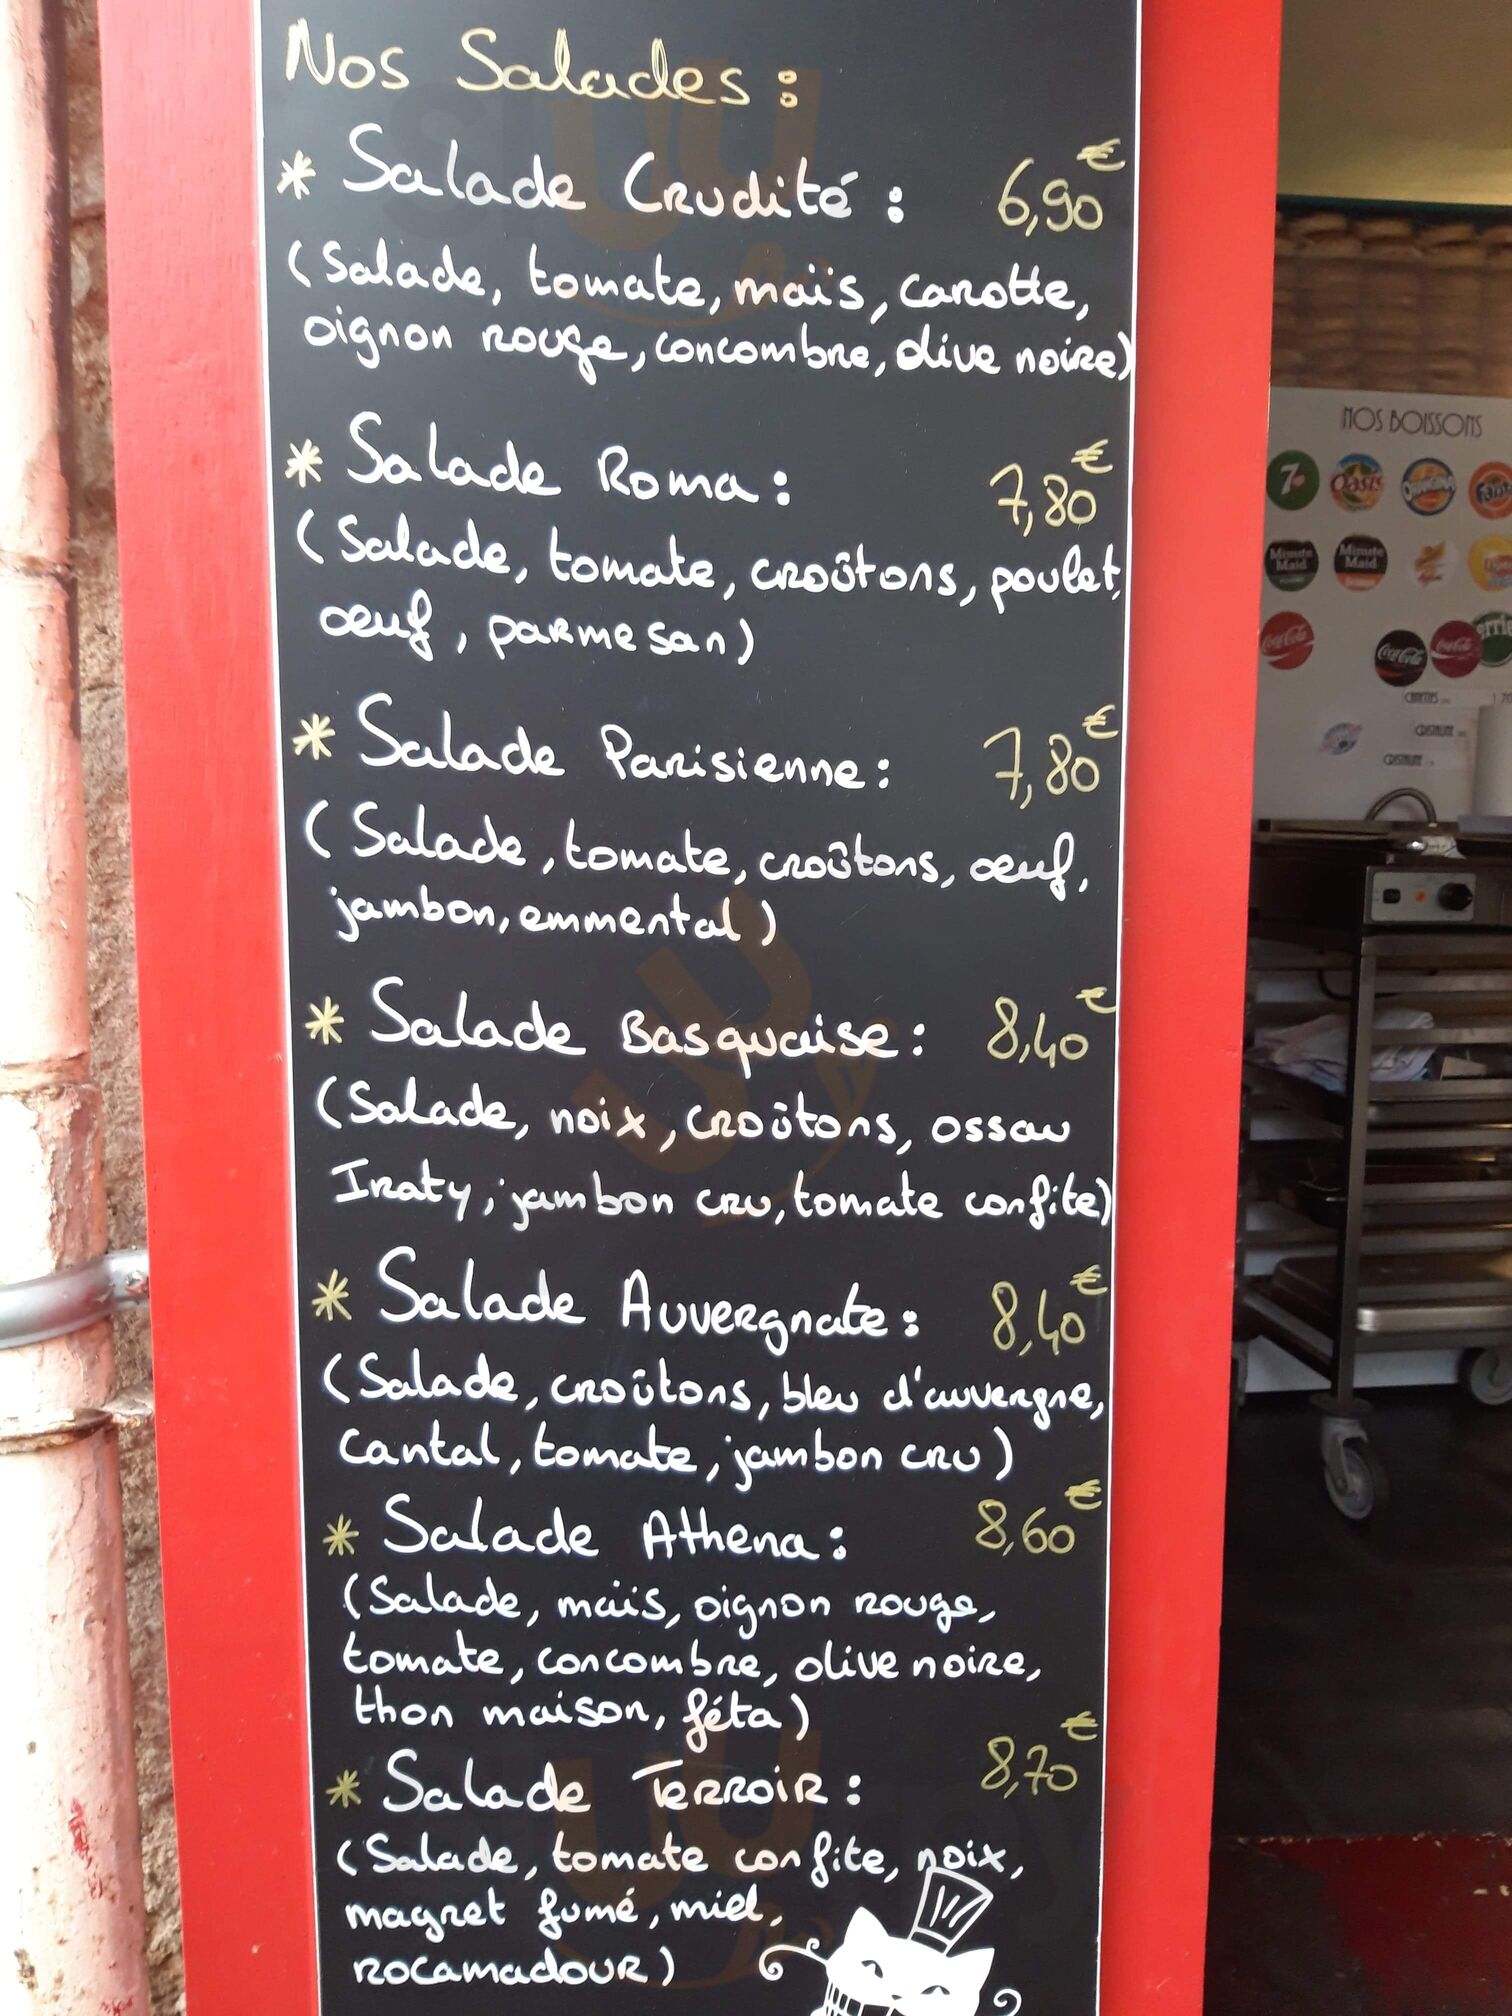 Nos Salades :
* Salade Crudité : 6,90€
(Salade, tomate, maïs, carotte,
oignon rouge, concombre, olive noire)
* Salade Roma : 7,80€
(Salade, tomate, croûtons, poulet,
œuf, parmesan)
* Salade Parisienne : 7,80€
(Salade, tomate, croûtons, œuf,
jambon, emmental)
* Salade Basquaise : 8,40€
(Salade, noix, croûtons, ossau
Iraty, jambon cru, tomate confite)
* Salade Auvergnate : 8,40€
(Salade, croûtons, bleu d'auvergne,
cantal, tomate, jambon cru)
* Salade Athena : 8,60€
(Salade, maïs, oignon rouge,
tomate, concombre, olive noire,
thon maison, féta)
* Salade Terroir : 8,70€
(Salade, tomate confite, noix,
magret fumé, miel,
rocamadour)
NOS BOISSONS
7 Oasis Orangina
Minute Maid Minute Maid
Coca-Cola Coca-Cola Coca-Cola